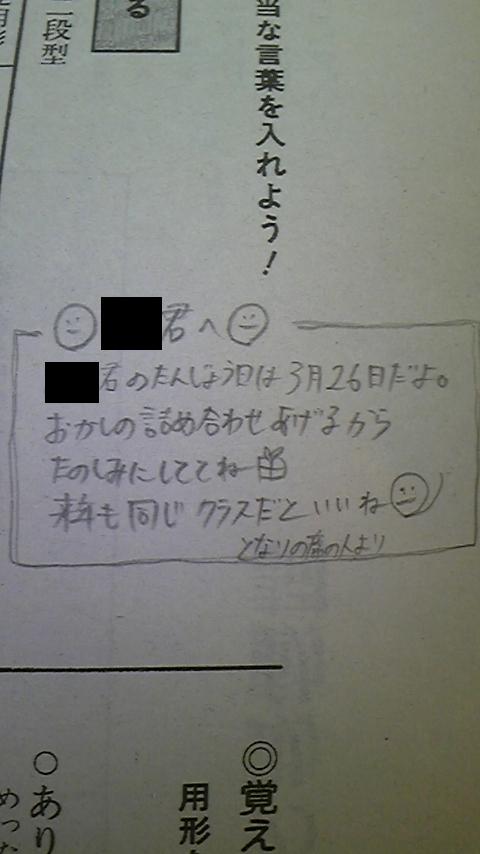 二段型
る
当な言葉を入れよう！
君へ
君のたんじょう日は3月26日だよ。
おかしの詰め合わせあげるから
たのしみにしててね
来年も同じクラスだといいね
となりの席の人より
◎覚え
用形
○あり
めった